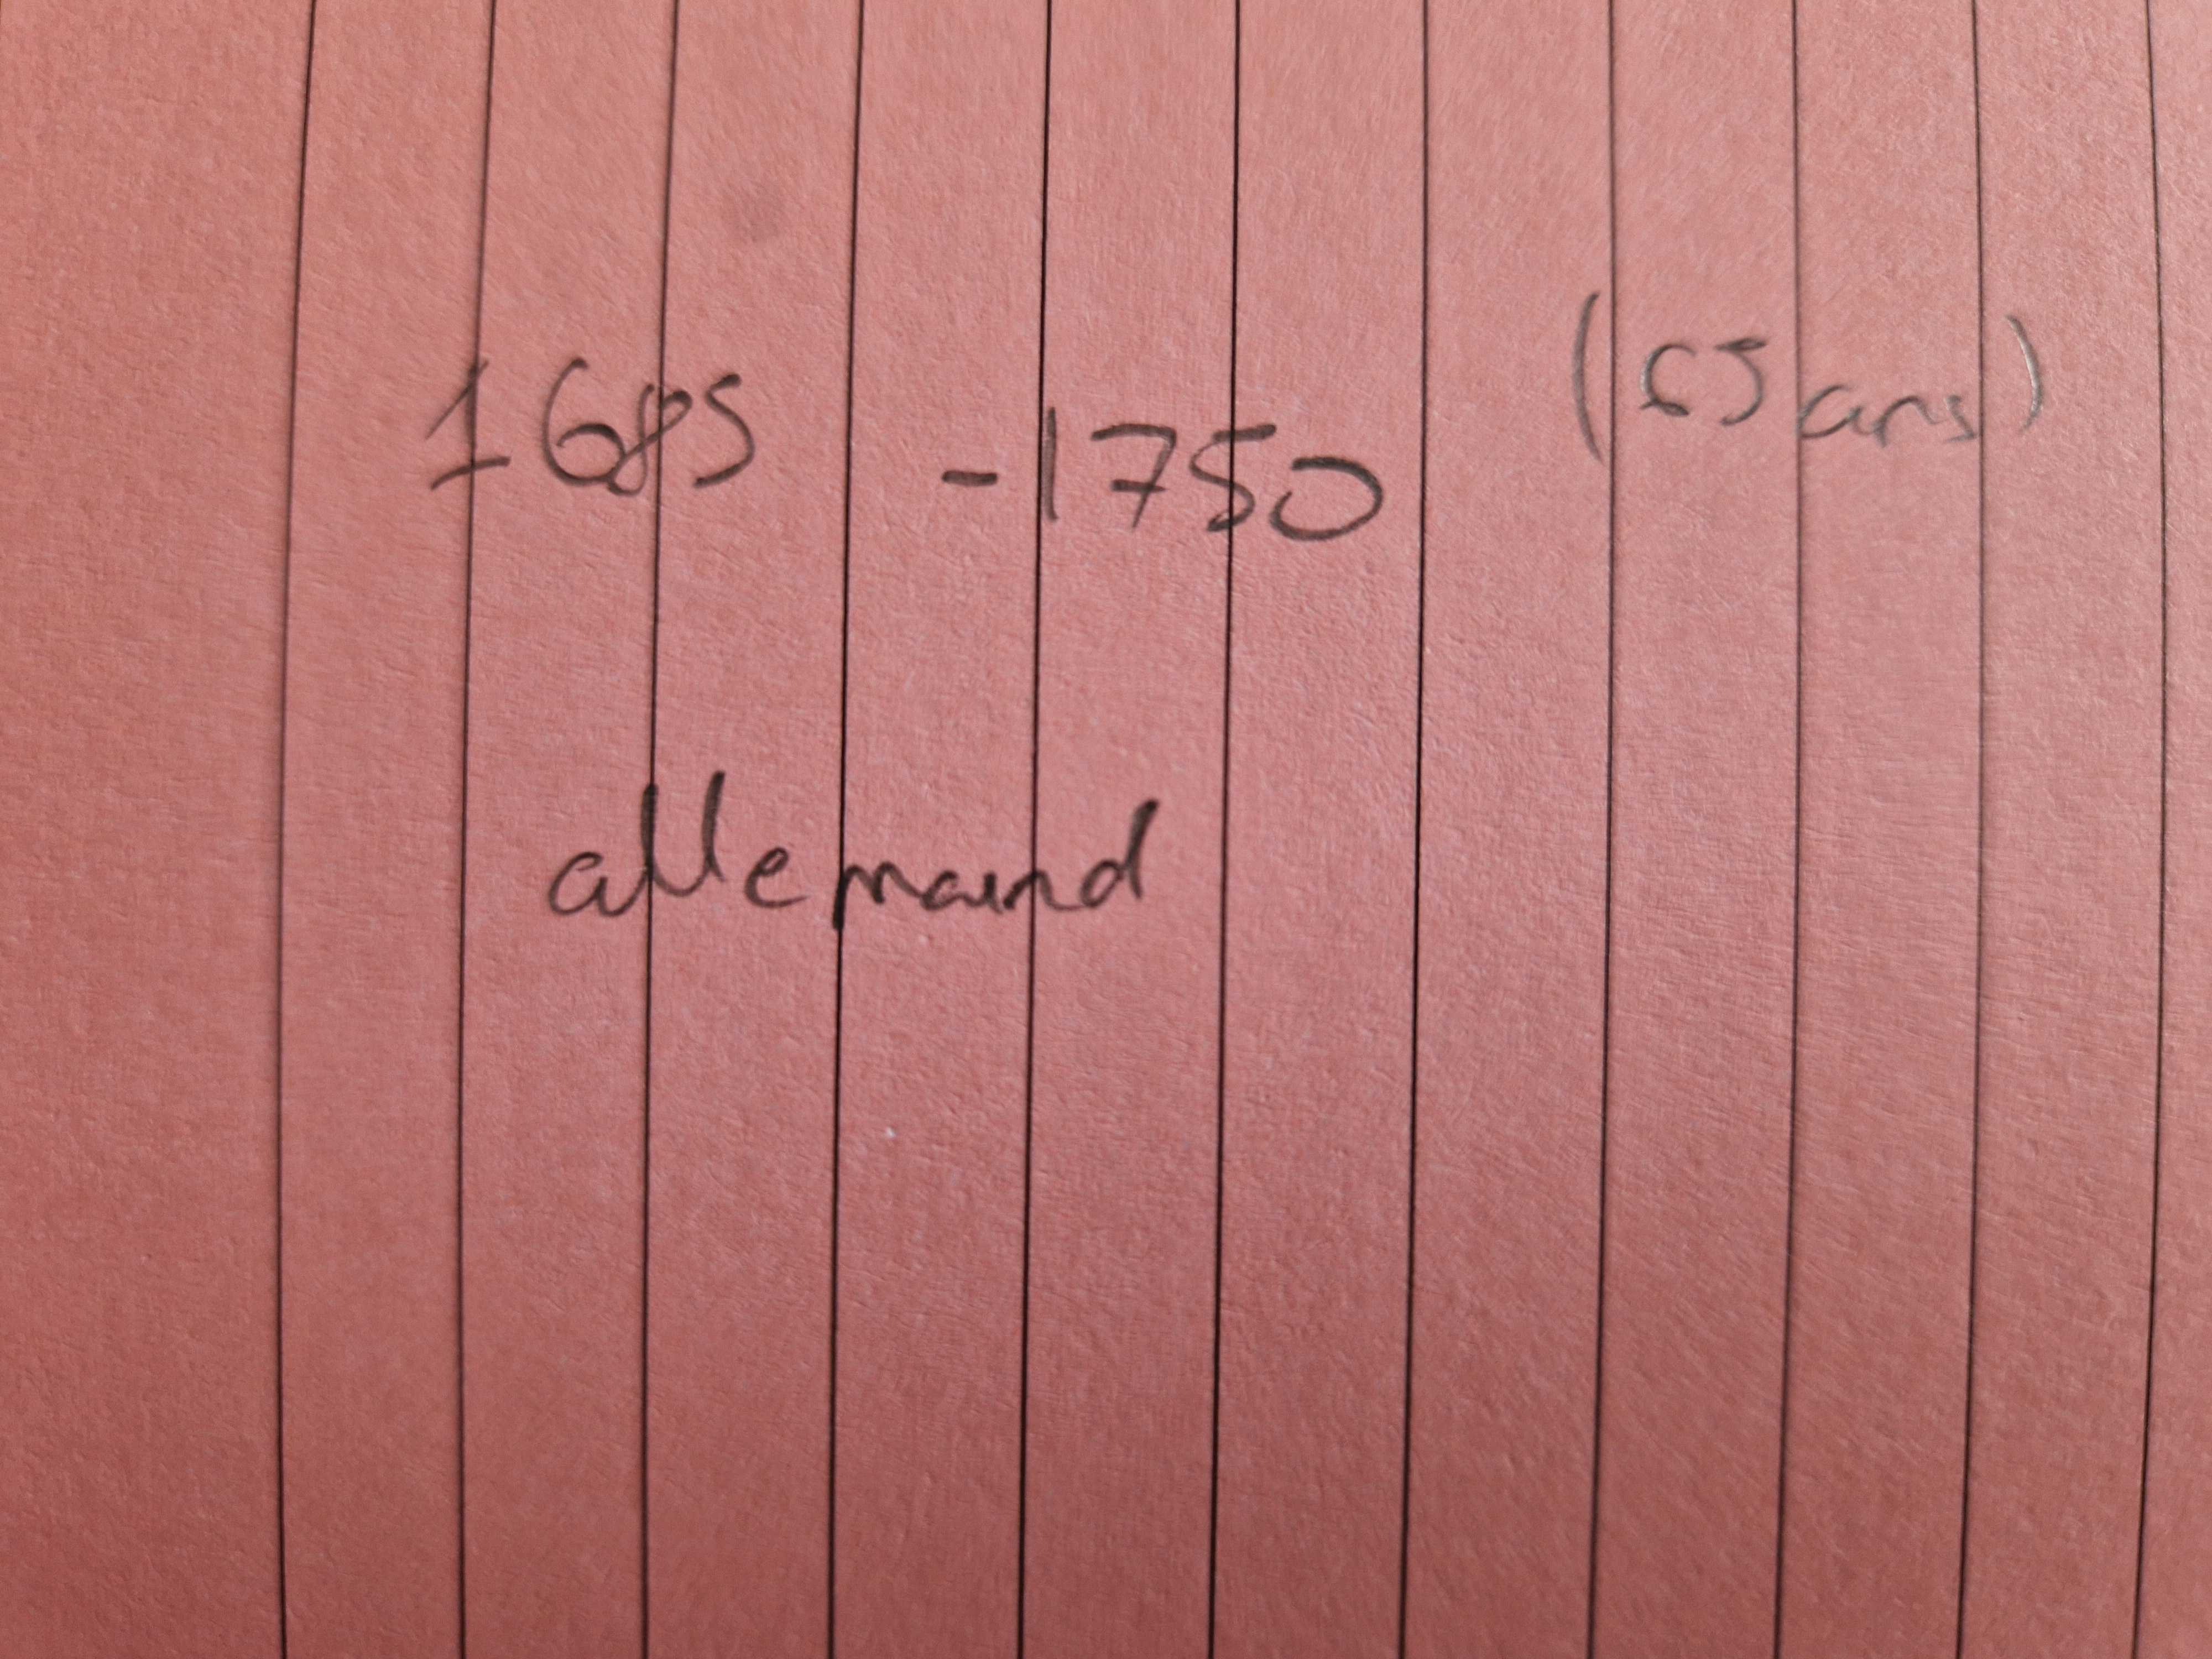 1685 -1750 (65 ans)
allemand